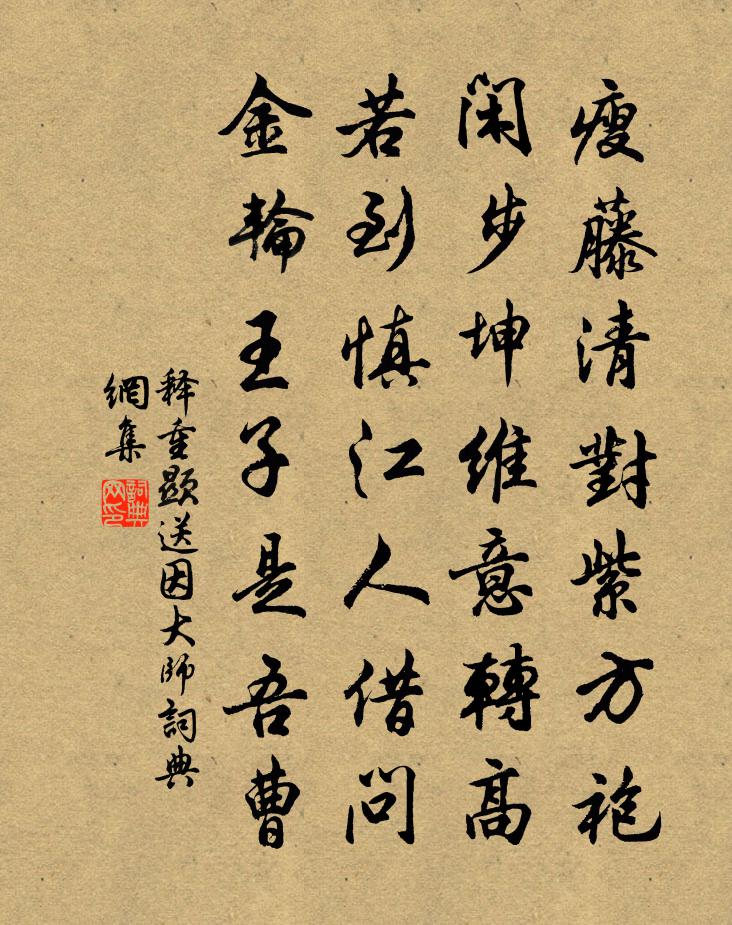 瘦藤清對紫方袍
閑步坤維意轉高
若到慎江人借問
金輪王子是吾曹
释重顯送因大師詞典
網集
詞典
网印